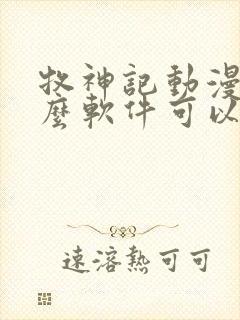 牧神記動漫
麼軟件可以
速溶熱可可